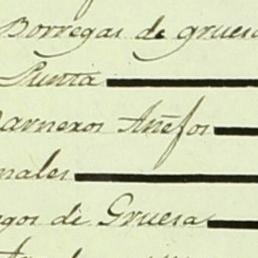 Borregas de gruesa
Punta
Carneros Añefos
nales
egos de Gruesa